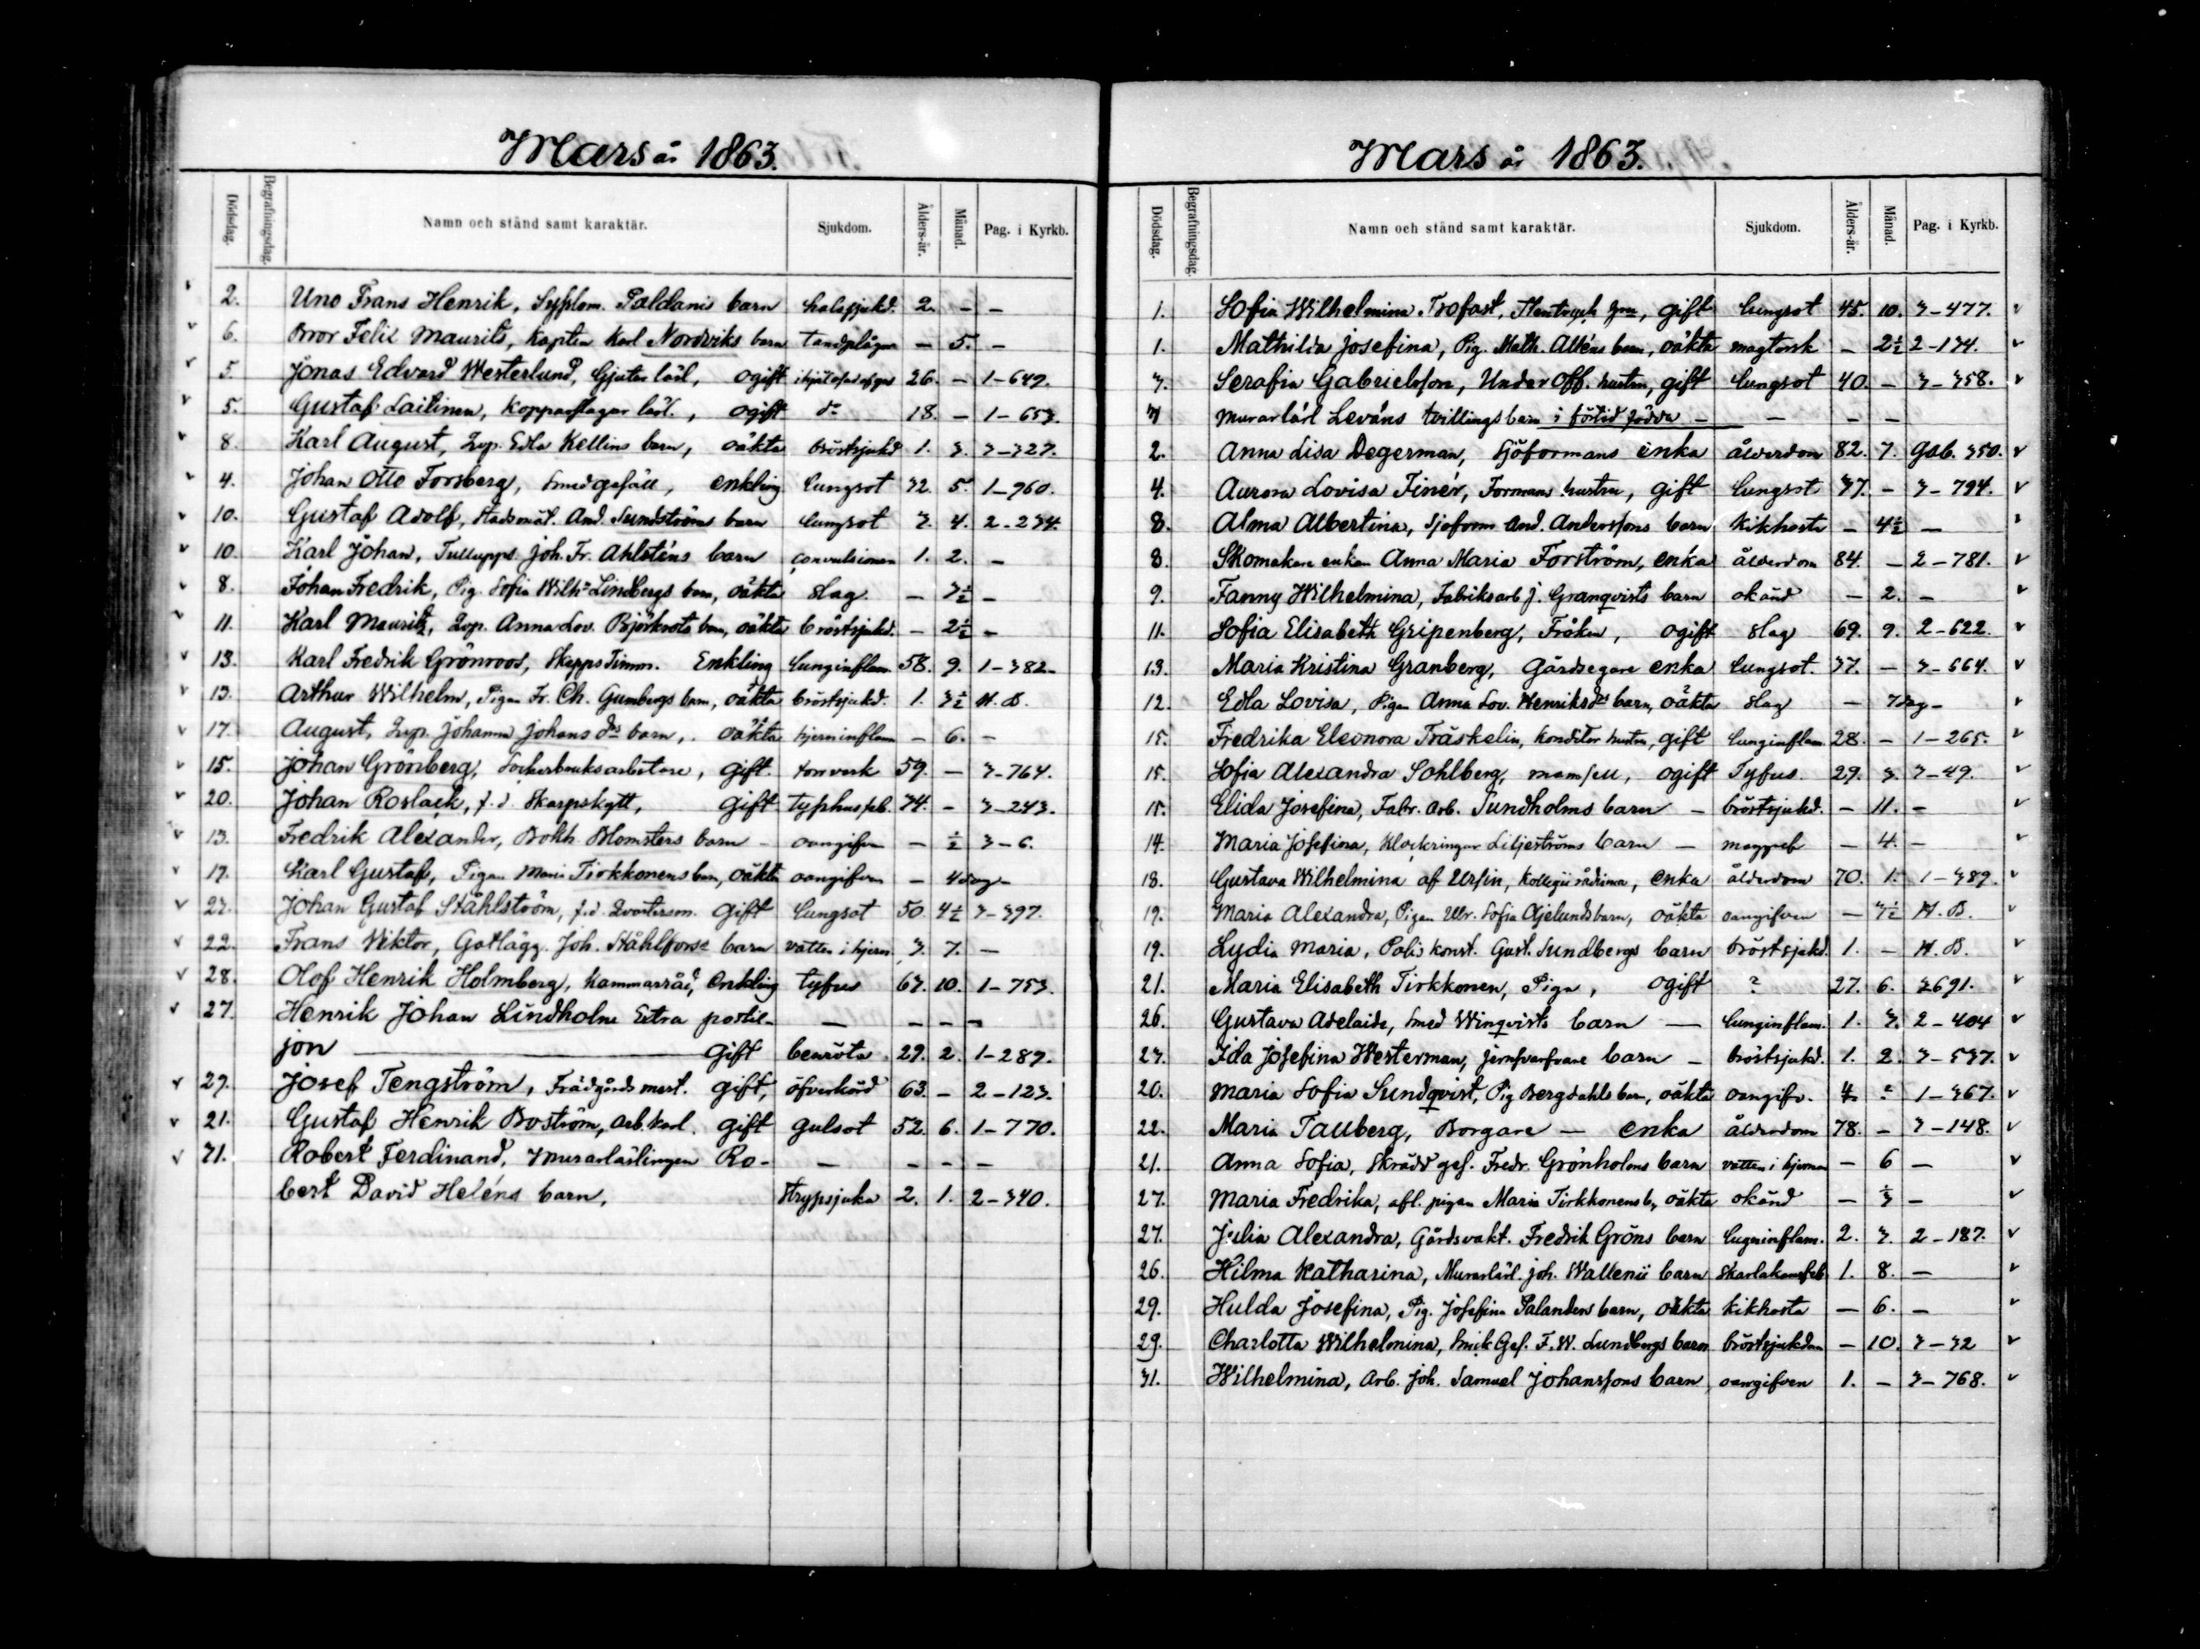 Mars år 1863.
Dödsdag. Begrafningsdag. Namn och stånd samt karaktär. Sjukdom. Ålders-år. Månad. Pag. i Kyrkb.
2. Uno Frans Henrik, Paldanis barn halssjukd. 2. – –
6. Bror Felix Maurits, Kapten Karl Nordviks barn tandplågor – 5. –
5. Jonas Edvard Westerlund, Gjutar lärl, ogift 26. – 1–649.
5. Gustaf Laitinen, Kopparslagar lärl., ogift do 18. – 1–653.
8. Karl August, Edla Kellins barn, oäkta bröstsjukd 1. 3. 3–327.
4. Johan Otto Forsberg, Smedgesäll, enkling lungsot 32. 5. 1–960.
10. Gustaf Adolf, And. Sundströms barn lungsot 3. 4. 2–234.
10. Karl Johan, Tullupps. Joh. Fr. Ahlsténs barn convulsioner 1. 2. –
8. Johan Fredrik, Pig. Sofia Wilh:a Lindbergs barn, oäkta slag – 3½ –
11. Karl Maurits, Anna Lov. Björkrots barn, oäkta bröstsjukd. – 2½ –
13. Karl Fredrik Grönroos, Skepps Timm. Enkling lunginflam. 58. 9. 1–382–
13. Arthur Wilhelm, Pigan Fr. Ch. Gumbergs barn, oäkta bröstsjukd. 1. 3½ H. B.
17. August, Johanna Johans d:rs barn, oäkta hjerninflam – 6. –
15. Johan Grönberg, Sockerbruksarbetare, gift. torrverk 59. – 3–764.
20. Johan Roslack, f. d. Skarpskytt, gift typhusfeb. 34. – 3–243.
13. Fredrik Alexander, Bokh. Blomsters barn – oangifven – ½ 3–6.
19. Karl Gustaf, Pigan Maria Tirkkonens barn, oäkta oangifven – 4 dag –
23. Johan Gustaf Ståhlström, f.d. gift lungsot 50. 4½ 3–397.
22. Frans Viktor, Gatlägg. Joh. Ståhlfors barn vatten i hjern 3. 7. –
28. Olof Henrik Holmberg, Kammarråd, enkling tyfus 67. 10. 1–753.
27. Henrik Johan Lindholm Extra postil– – – – –
jon gift benröta 29. 2. 1–289.
29. Josef Tengström, Trädgårds mast. gift, öfverkörd 63. – 2–123.
21. Gustaf Henrik Boström, arb. karl. gift gulsot 52. 6. 1–770.
31. Robert Ferdinand, Murarlärlingen Ro– – – – –
bert David Heléns barn, Strypsjuka 2. 1. 2–340.
Mars år 1863.
Dödsdag. Begrafningsdag. Namn och stånd samt karaktär. Sjukdom. Ålders-år. Månad. Pag. i Kyrkb.
1. Sofia Wilhelmina Trofast, gift lungsot 45. 10. 3–477.
1. Mathilda Josefina, Pig. Math. Alléns barn, oäkta magtorsk – 2½ 2–134.
3. Serafia Gabrielsson, Under Off. hustru, gift lungsot 40. – 3–358.
3 Murar lärl Levéns tvillingsbarn i förtid födda – – – –
2. Anna Lisa Degerman, Sjöformans enka ålderdom 82. 7. Gsb. 350.
4. Aurora Lovisa Finér, Formans hustru, gift lungsot 37. – 3–794.
8. Alma Albertina, Sjöform. And. Anderssons barn Kikhosta – 4½ –
8. Skomakare enkan Anna Maria Forström, enka ålderdom 84. – 2–781.
9. Fanny Wilhelmina, Fabriksarb J. Granqvists barn okänd – 2. –
11. Sofia Elisabeth Gripenberg, Fröken, ogift slag 69. 9. 2–622.
13. Maria Kristina Granberg, Gårdsegare enka lungsot. 37. – 3–664.
12. Edla Lovisa, Pigan Anna Lov. Henriksdrs barn, oäkta slag – 7 dag –
15. Fredrika Eleonora Träskelin, Konditor hustru, gift lunginflam 28. – 1–265.
15. Sofia Alexandra Sohlberg, mamsell, ogift Tyfus 29. 3. 3–49.
15. Elida Josefina, Fabr. Arb. Sundholms barn – bröstsjukd. – 11. –
14. Maria Josefina, Klockringar Liljeströms barn – – 4. –
18. Gustava Wilhelmina af Ursin, Kollegii rådinna, enka ålderdom 70. 1. 1–389.
19. Maria Alexandra, Pigan Ulr. Sofia Ajelunds barn, oäkta oangifven – 3½ H. B.
19. Lydia Maria, Polis konst. Gust. Sundbergs barn bröstsjukd 1. – H. B.
21. Maria Elisabeth Tirkkonen, Piga, ogift ? 27. 6. 3691.
26. Gustava Adelaide, Smed Winqvists barn – lunginflam. 1. 3. 2–404
23. Ida Josefina Westerman, barn – bröstsjukd. 1. 2. 3–537.
20. Maria Sofia Sundqvist, Pig Bergdahls barn, oäkta oangifv. 4 ? 1–367.
22. Maria Tauberg, Borgare – enka ålderdom 78. – 3–148.
21. Anna Sofia, Skrädd ges. Fredr. Grönholms barn vatten i hjernan – 6 –
27. Maria Fredrika, afl. pigan Maria Tirkkonens b., oäkta okänd – ⅓ –
27. Julia Alexandra, Gårdsvakt. Fredrik Gröns barn lunginflam. 2. 3. 2–187.
26. Hilma Katharina, Murarlärl. Joh. Wallenii barn Skarlakansfeb 1. 8. –
29. Hulda Josefina, Pig. Josefina Palandens barn, oäkta kikhosta – 6. –
29. Charlotta Wilhelmina, Ges. F. W. Lundbergs barn bröstsjukdom – 10. 3–32
31. Wilhelmina, Arb. Joh. Samuel Johanssons barn, oangifven 1. – 3–768.